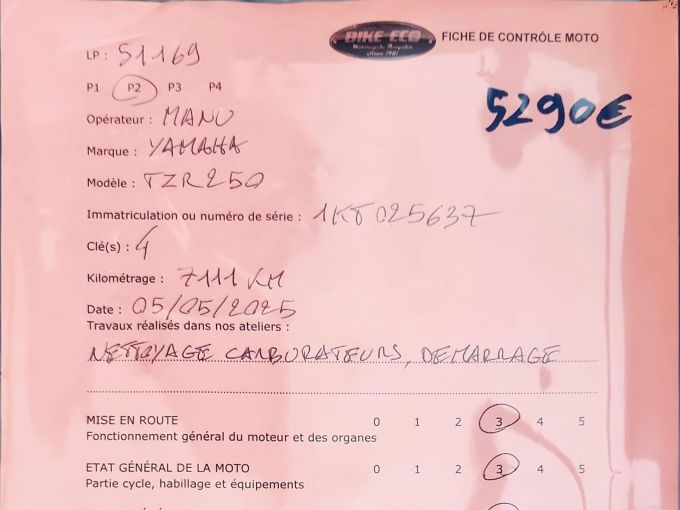 BIKE-ECO
Motorcycle Recycler
Since 1981
FICHE DE CONTRÔLE MOTO
LP : 51169
P1 P2 P3 P4
5290€
Opérateur : MANU
Marque : YAMAHA
Modèle : TZR250
Immatriculation ou numéro de série : 1KT025637
Clé(s) : 4
Kilométrage : 7111 KM
Date : 05/05/2025
Travaux réalisés dans nos ateliers :
NETTOYAGE CARBURATEURS, DEMARRAGE
MISE EN ROUTE 0 1 2 3 4 5
Fonctionnement général du moteur et des organes
ETAT GÉNÉRAL DE LA MOTO 0 1 2 3 4 5
Partie cycle, habillage et équipements